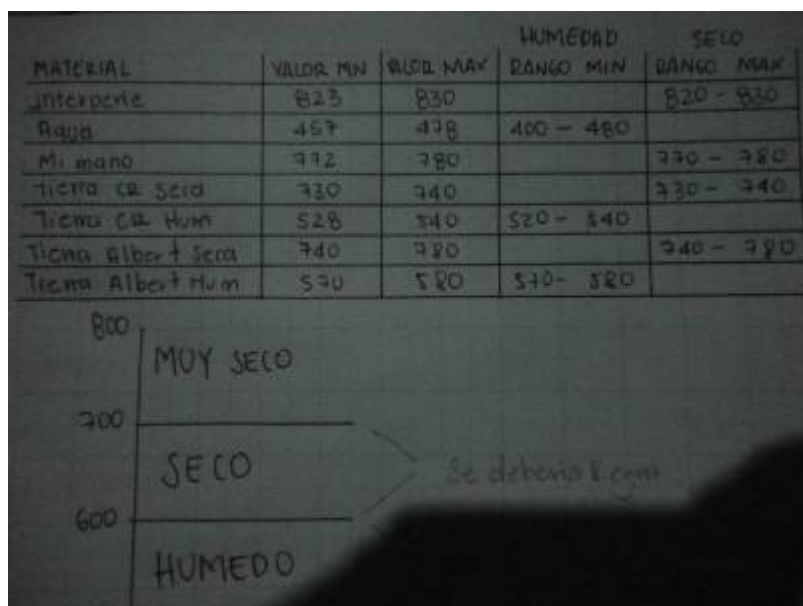 HUMEDAD SECO
MATERIAL VALOR MIN VALOR MAX RANGO MIN RANGO MAX
interperie 823 830 820 - 830
Agua 457 478 400 - 480
Mi mano 772 780 770 - 780
Tierra CR Seca 730 740 730 - 740
Tierra CR Hum 528 540 520 - 540
Tierra Albert Seca 740 780 740 - 780
Tierra Albert Hum 570 580 570 - 580
800
MUY SECO
700
SECO
Se deberia
600
HUMEDO